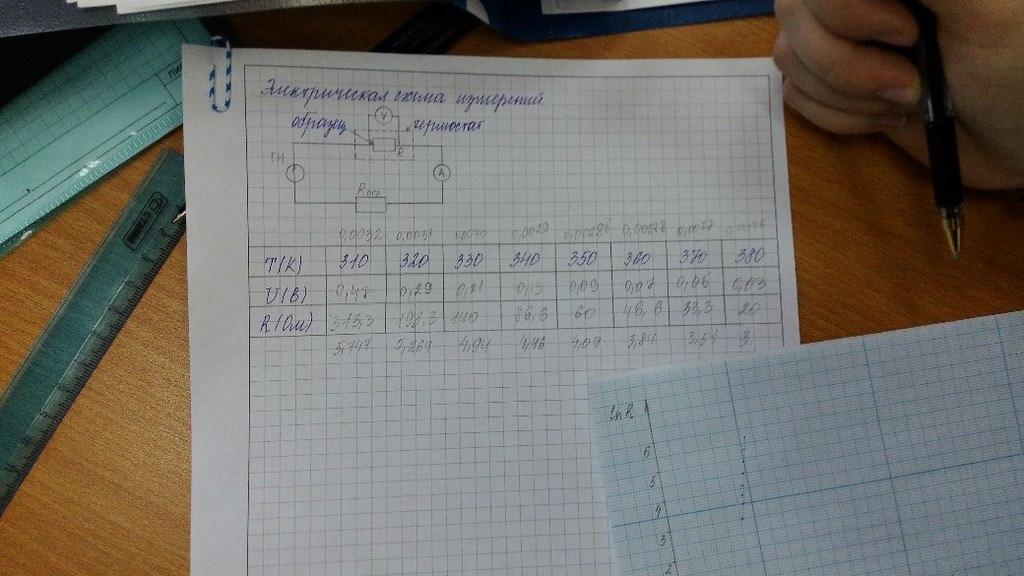 Электрическая схема измерений
V
образец термостат
R
ГН A
Rогр
0,0032 0,0031 0,0030 0,0029 0,00286 0,0027
T(К) 310 320 330 340 350 360 370 380
U(В) 0,47 0,29 0,21 0,13 0,09 0,07 0,05 0,03
R(Ом) 313,3 193,3 140 86,6 60 46,6 33,3 20
5,747 5,264 4,94 4,46 4,09 3,84 3,51 3
lnR
6
5
4
3
2